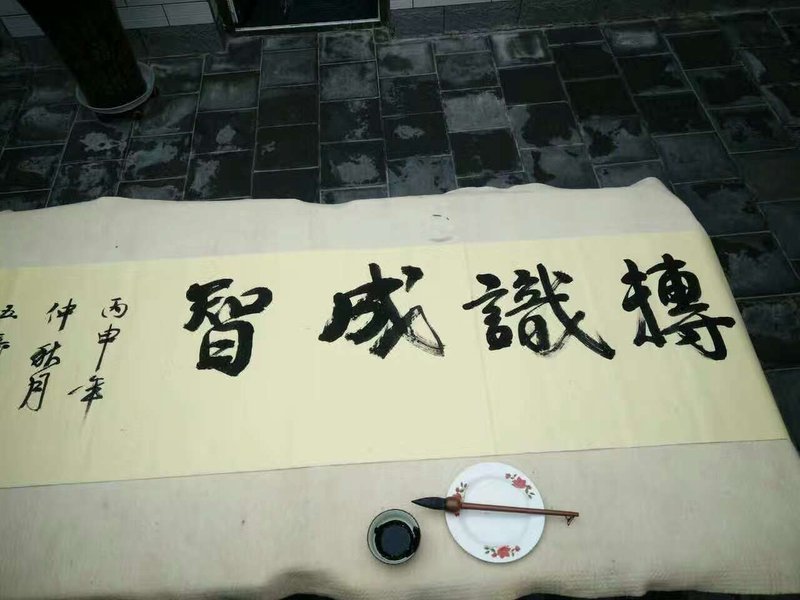 轉識成智
丙申年
仲秋月
五